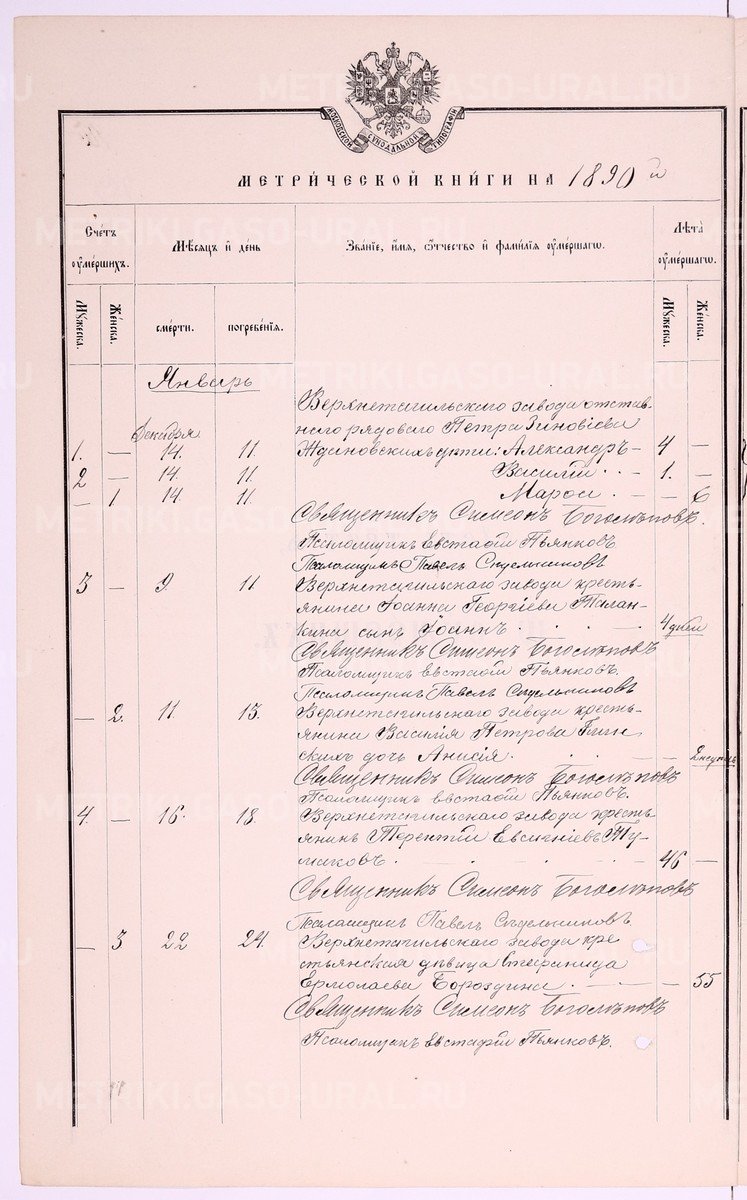 МОСКОВСКОЙ СѴНОДАЛЬНОЙ ТИПОГРАФІИ
МЕТРИ́ЧЕСКОЙ КНИ́ГИ НА 1890 й
Сче́тъ оумершихъ.
Мѣсяцъ и де́нь
Зва́нїе, и́мя, Ѻ҆́тчество и фами́лїя оуме́ршагѡ.
Лѣта̀ оуме́ршагѡ.
Му́жеска.
Же́нска.
сме́рти.
погребе́нїя.
Му́жеска.
Же́нска.
Январь
Верхнетагильскаго завода отстав-
Декабря
наго рядоваго Петра Зиновіева
1. — 14. 11. Ждановскихъ дѣти: Александръ — 4 —
2 — 14. 11. Василій . . — 1. —
— 1 14 11. — — 6
Священникъ Симеонъ Боголѣповъ.
Псаломщикъ Евстафій Пьянковъ.
Псаломщикъ Павелъ Сѣдельниковъ
3 — 9 11 Верхнетагильскаго завода кресть-
янина Іоанна Георгіева Талан-
кина сынъ Іоаннъ . . . — 4 дней
Священникъ Симеонъ Боголѣповъ
Псаломщикъ Евстафій Пьянковъ.
Псаломщикъ Павелъ Сѣдельниковъ
— 2. 11 13. Верхнетагильскаго завода кресть-
янина Василія Петрова Глин
скихъ дочь Анисія. . . . — 2 недѣль
Священникъ Симеонъ Боголѣповъ
Псаломщикъ Евстафій Пьянковъ.
4. — 16. 18. Верхнетагильскаго завода кресть-
янинъ Терентій Евсигніевъ Ту-
маковъ. . . . . 46 —
Священникъ Симеонъ Боголѣповъ
Псаломщикъ Павелъ Сѣдельниковъ.
— 3 22 24. Верхнетагильскаго завода кре
стьянская дѣвица Стефанида
Ермолаева Бороздина. — — — 55
Священникъ Симеонъ Боголѣповъ
Псаломщикъ Евстафій Пьянковъ.
METRIKI.GASO-URAL.RU